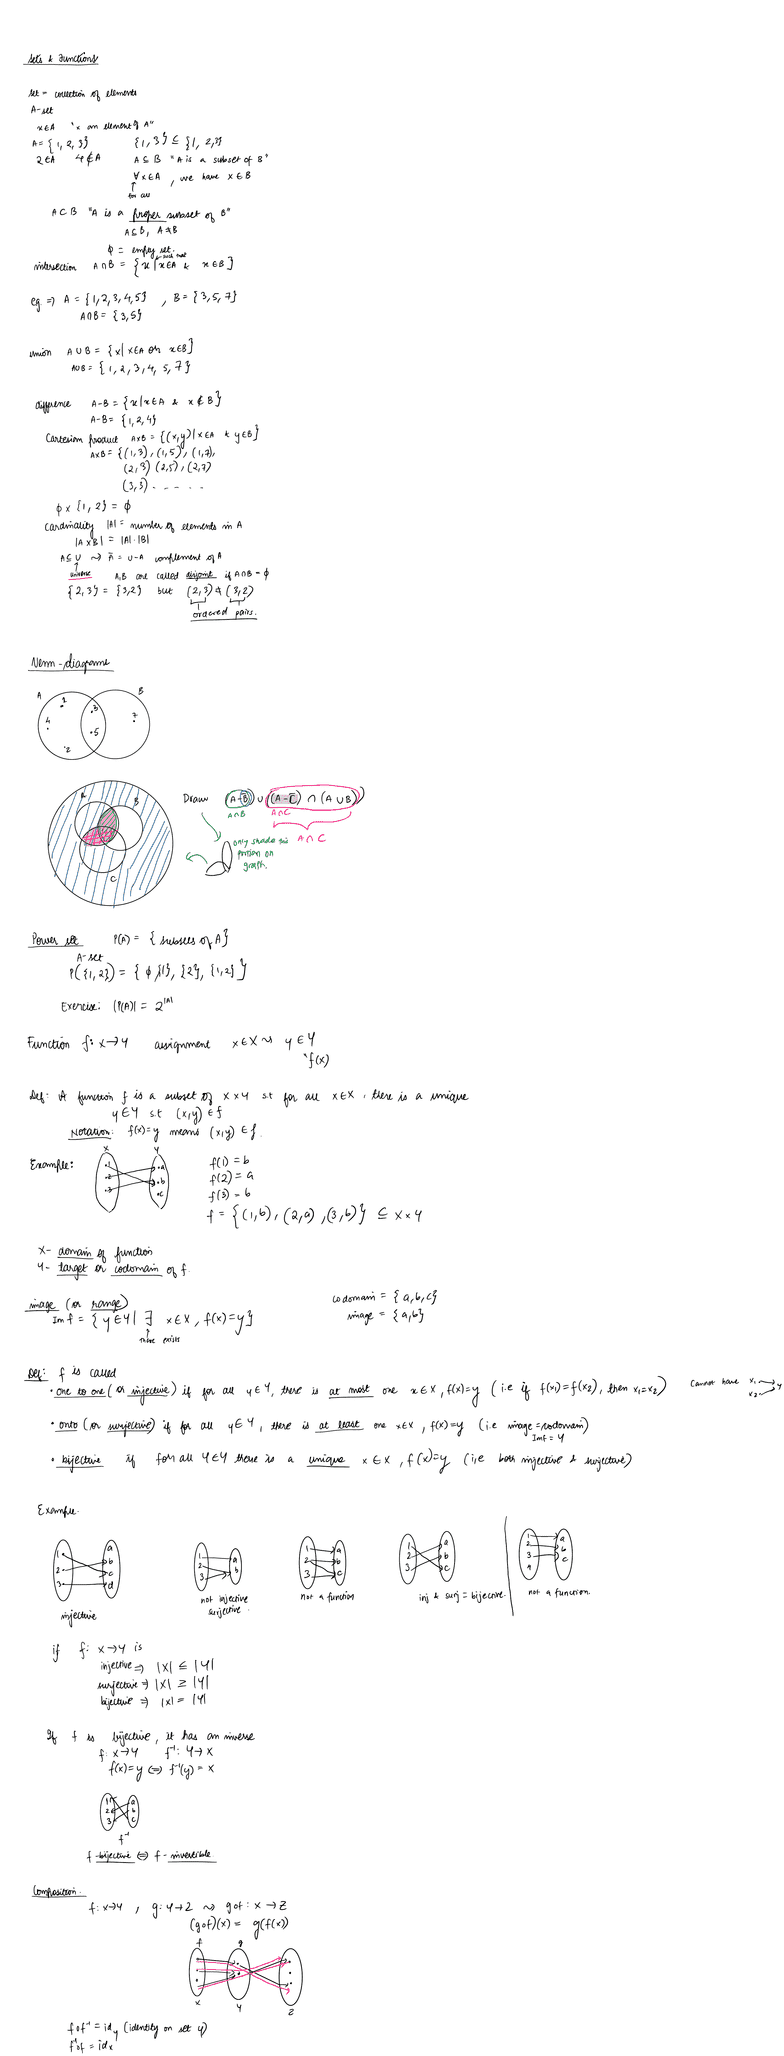 Sets & Functions
set = collection of elements
A-set
x∈A "x an element of A"
A = {1, 2, 3} {1, 3} ⊆ {1, 2, 3}
2∈A 4∉A A ⊆ B "A is a subset of B"
∀x∈A, we have x∈B
↑
for all
A ⊂ B "A is a proper subset of B"
A⊆B, A≠B
ϕ = empty set.
such that
intersection A∩B = {x | x∈A & x∈B}
eg ⇒ A = {1, 2, 3, 4, 5} , B = {3, 5, 7}
A∩B = {3, 5}
union A∪B = {x | x∈A or x∈B}
A∪B = {1, 2, 3, 4, 5, 7}
difference A-B = {x | x∈A & x∉B}
A-B = {1, 2, 4}
Cartesian product A×B = {(x,y) | x∈A & y∈B}
A×B = {(1,3), (1,5), (1,7),
(2,3) (2,5), (2,7)
(3,3) - - - - -
ϕ × {1, 2} = ϕ
Cardinality |A| = number of elements in A
|A×B| = |A|·|B|
A⊆U ⇝ Ā = U-A complement of A
↑
universe A,B are called disjoint if A∩B = ϕ
{2, 3} = {3,2} but (2,3) ≠ (3,2)
ordered pairs.
Venn-diagrams
A B
1 3 7
4 5
2
A B
C
Draw (A-B̄) ∪ ((A-C̄) ∩ (A∪B))
A∩B A∩C
A∩C
only shade this
portion on
graph.
Power set P(A) = {subsets of A}
A-set
P({1,2}) = {ϕ, {1}, {2}, {1,2}}
Exercise: |P(A)| = 2^|A|
Function f: X→Y assignment x∈X ⇝ y∈Y
f(x)
Def: A function f is a subset of X×Y s.t for all x∈X, there is a unique
y∈Y s.t (x,y)∈f
Notation: f(x)=y means (x,y)∈f.
Example: X Y
1 2 3 a b c
f(1) = b
f(2) = a
f(3) = b
f = {(1,b), (2,a), (3,b)} ⊆ X×Y
X- domain of function
Y- target or codomain of f.
image (or range)
Im f = {y∈Y | ∃ x∈X, f(x)=y}
↑
there exists
codomain = {a,b,c}
image = {a,b}
Def: f is called
• one to one (or injective) if for all y∈Y, there is at most one x∈X, f(x)=y (i.e if f(x₁)=f(x₂), then x₁=x₂) Cannot have x₁ x₂ y
• onto (or surjective) if for all y∈Y, there is at least one x∈X, f(x)=y (i.e image=codomain)
Imf = Y
• bijective if for all Y∈Y there is a unique x∈X, f(x)=y (i.e both injective & surjective)
Example.
1 2 3 a b c d
injective
1 2 3 a b
not injective
surjective.
1 2 3 a b c
not a function
1 2 3 a b c
inj & surj = bijective.
1 2 3 4 a b c
not a function.
if f: X→Y is
injective ⇒ |X| ≤ |Y|
surjective ⇒ |X| ≥ |Y|
bijective ⇒ |X| = |Y|
If f is bijective, it has an inverse
f: X→Y f⁻¹: Y→X
f(x)=y ⇔ f⁻¹(y) = x
1 2 3 a b c
f⁻¹
f - bijective ⇔ f - invertible
Composition.
f: X→Y , g: Y→Z ⇝ gof: X→Z
(gof)(x) = g(f(x))
f g
X Y Z
fof⁻¹ = id_Y (identity on set Y)
f⁻¹of = id_X